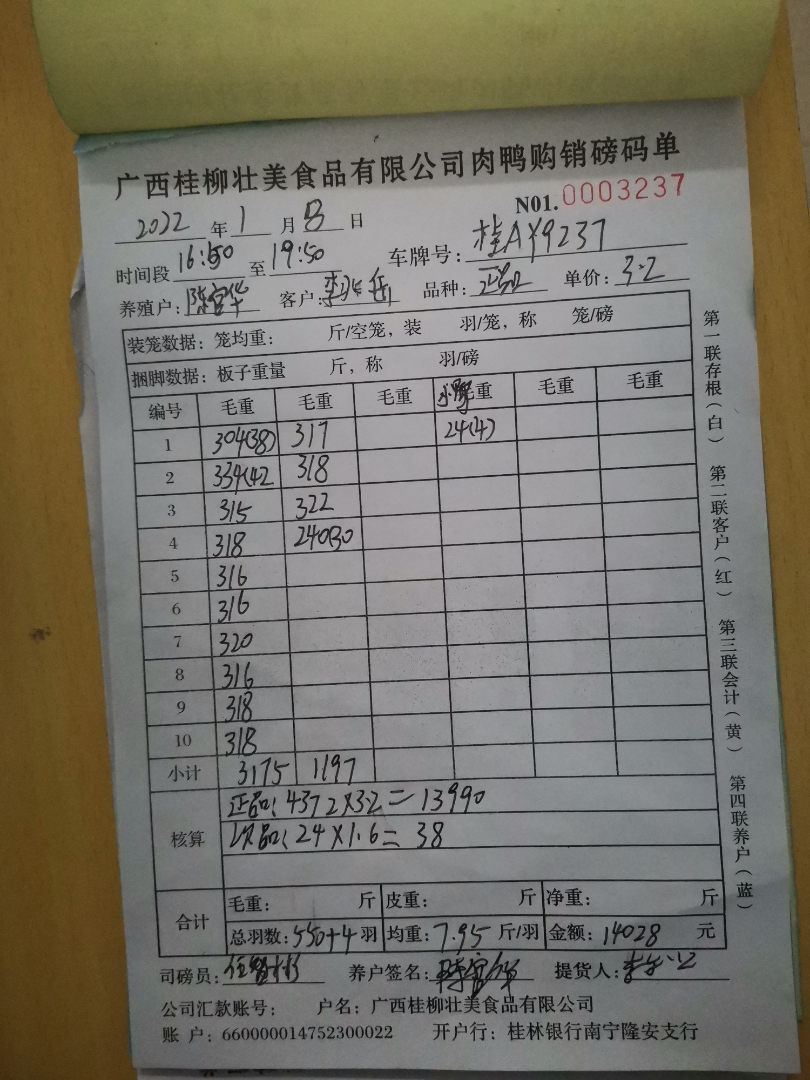 广西桂柳壮美食品有限公司肉鸭购销磅码单
N01. 0003237
2022 年 1 月 8 日
时间段 16:50 至 19:50 车牌号: 桂AY9237
养殖户: 陈官华 客户: 品种: 正品 单价: 3.2
装笼数据: 笼均重: 斤/空笼, 装 羽/笼, 称 笼/磅
捆脚数据: 板子重量 斤, 称 羽/磅
编号 毛重 毛重 毛重 毛重 毛重 毛重
1 304(38) 317 24(4)
2 334(42 318
3 315 322
4 318 240(30
5 316
6 316
7 320
8 316
9 318
10 318
小计 3175 1197
核算 正品: 4372×3.2=13990
次品: 24×1.6=38
合计 毛重: 斤 皮重: 斤 净重: 斤
总羽数: 550+4 羽 均重: 7.95 斤/羽 金额: 14028 元
司磅员: 养户签名: 陈官华 提货人:
公司汇款账号: 户名: 广西桂柳壮美食品有限公司
账 户: 660000014752300022 开户行: 桂林银行南宁隆安支行
第一联存根(白) 第二联客户(红) 第三联会计(黄) 第四联养户(蓝)